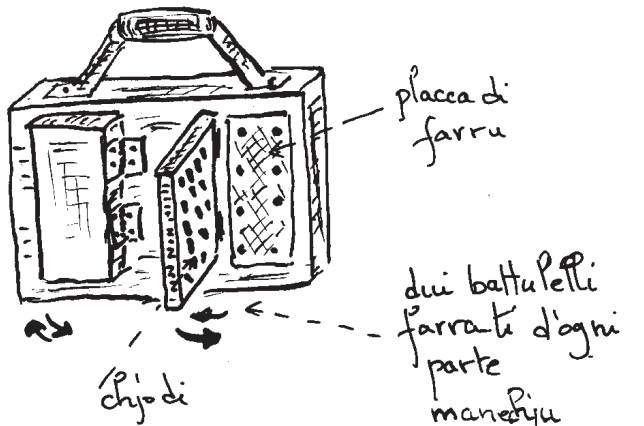 placca di
farru
dui battulelli
farrati d'ogni
parte
manechju
chjodi